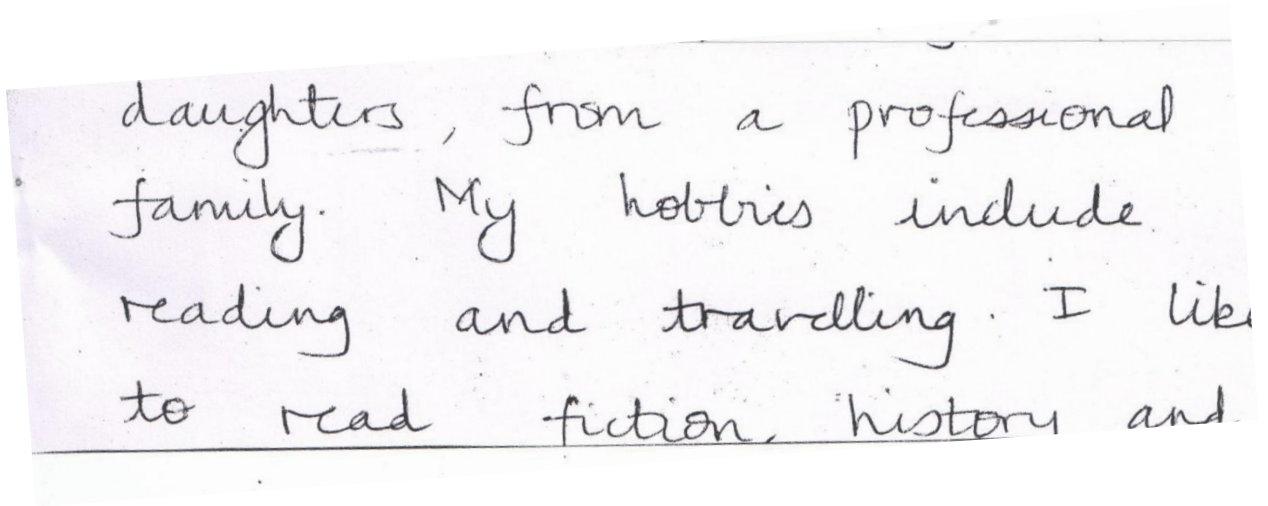 daughters, from a professional
family. My hobbies include
reading and travelling. I like
to read fiction, history and